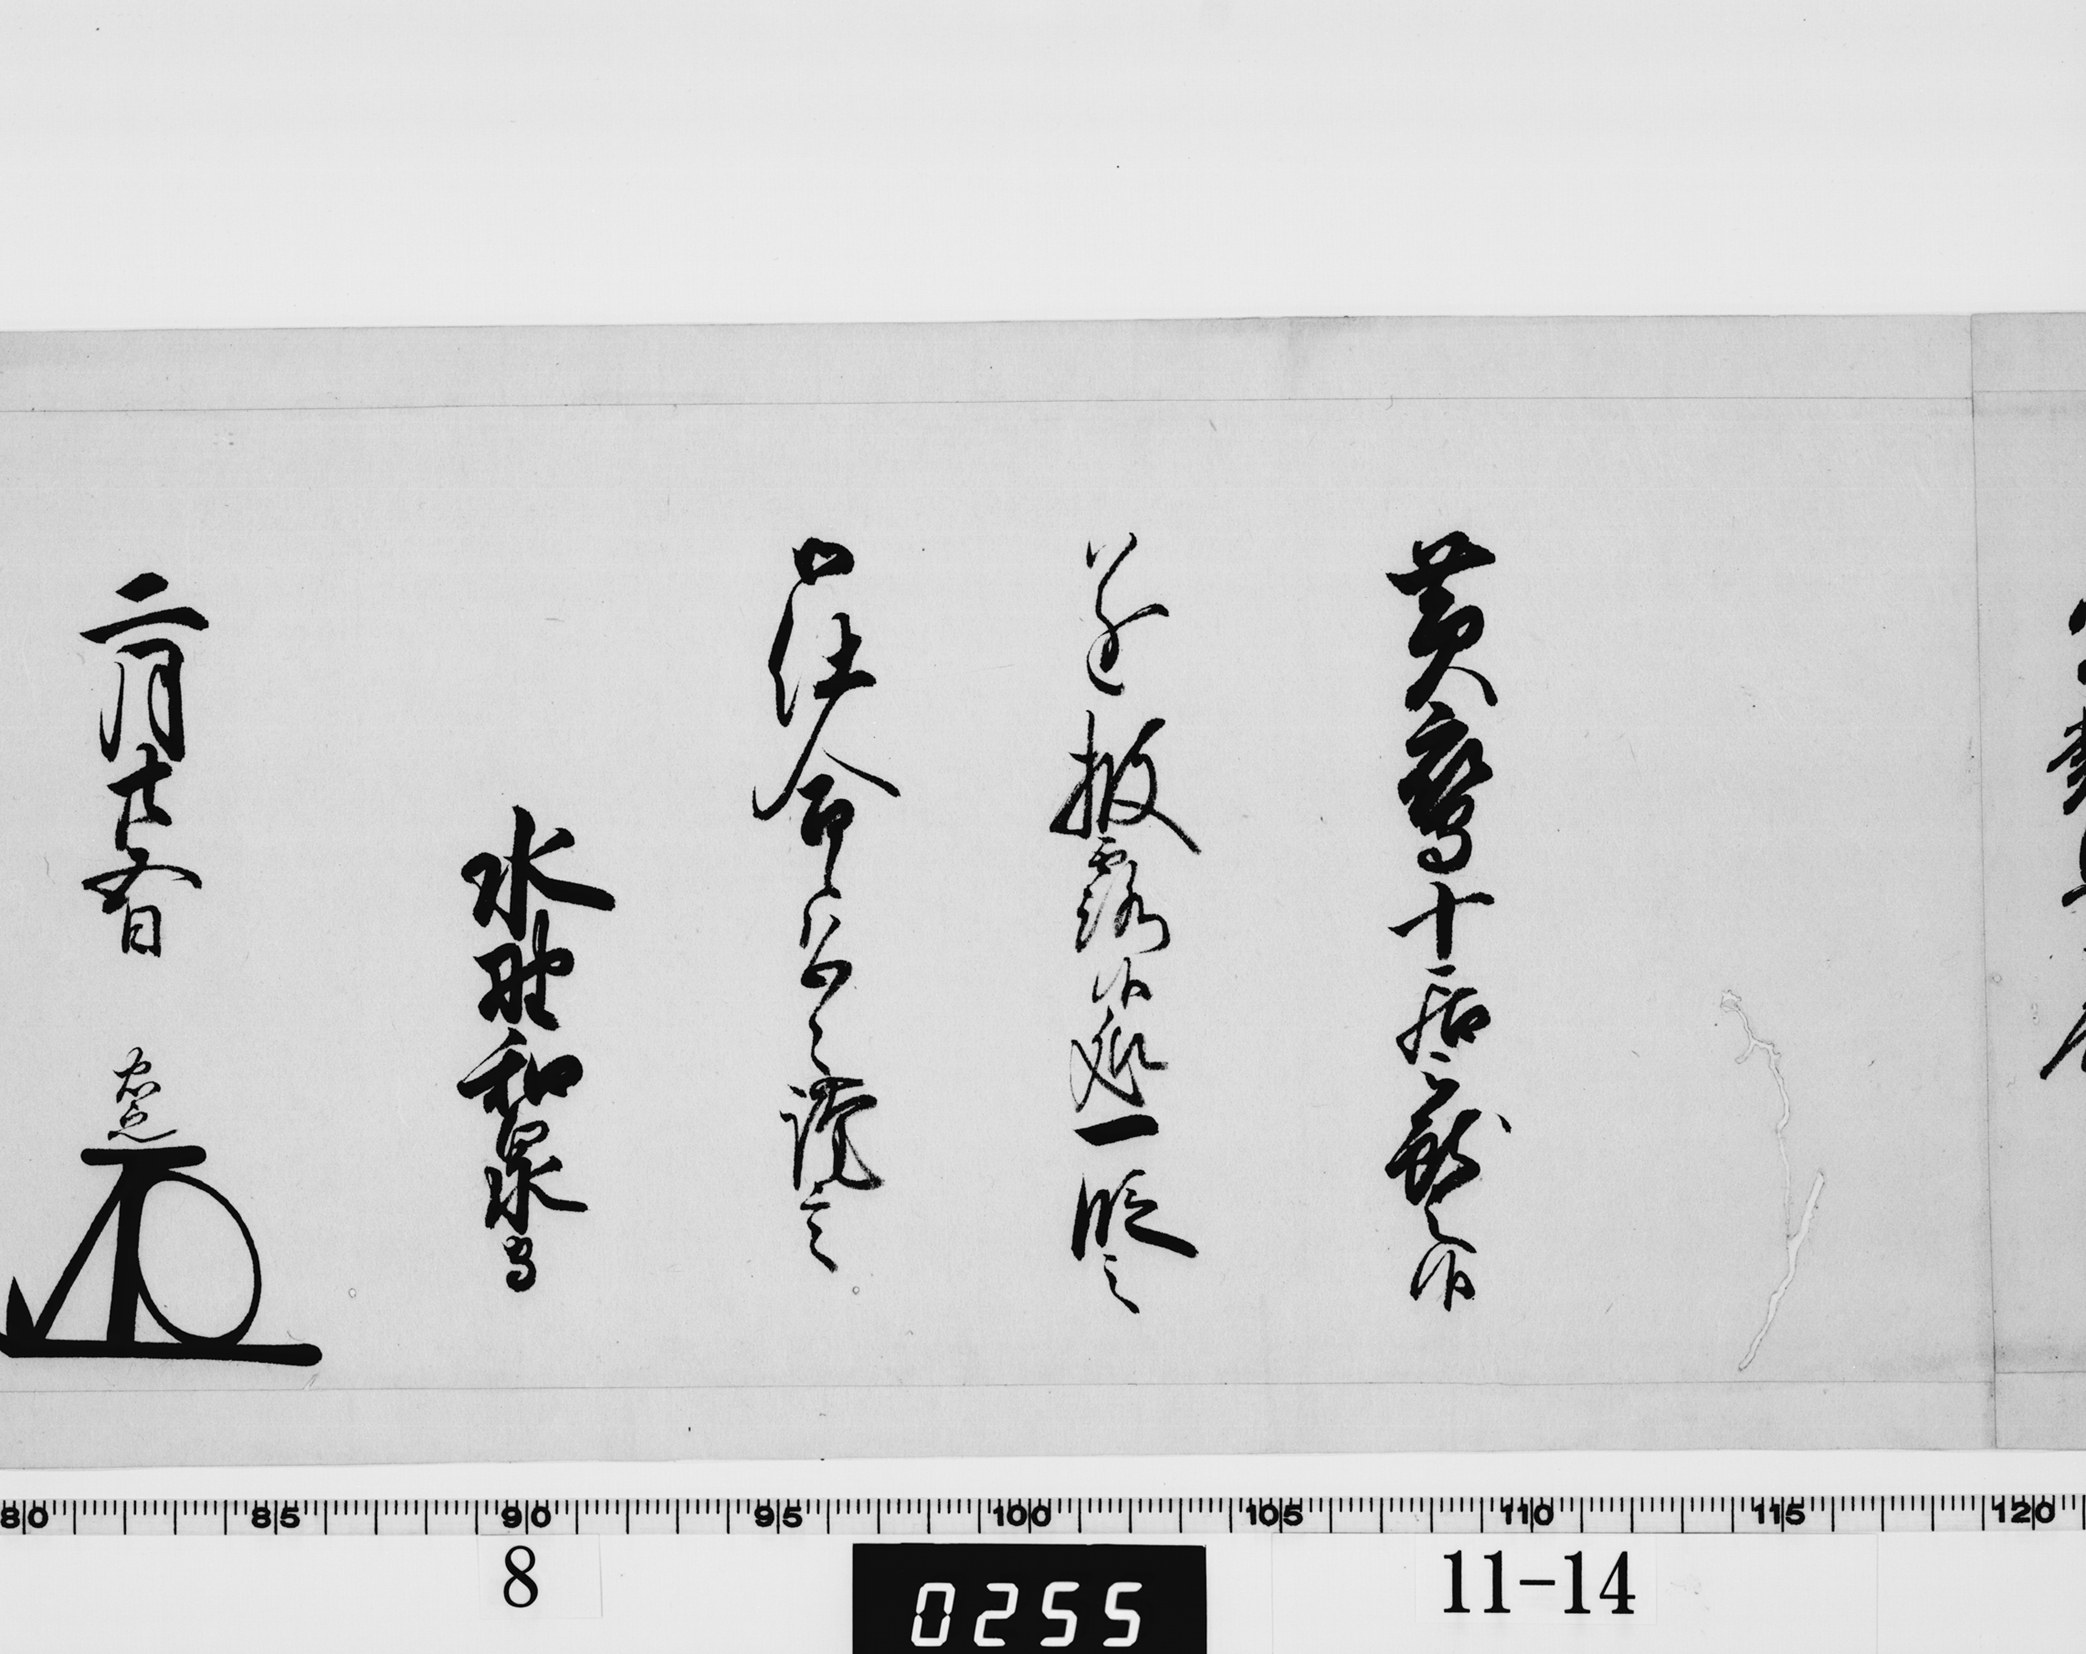 黄鷹十居被献之候
遂披露候処一段之
御仕合候恐々謹言
水野和泉守
二月廿五日 忠之
80 85 90 95 100 105 110 115 120
8 0255 11-14